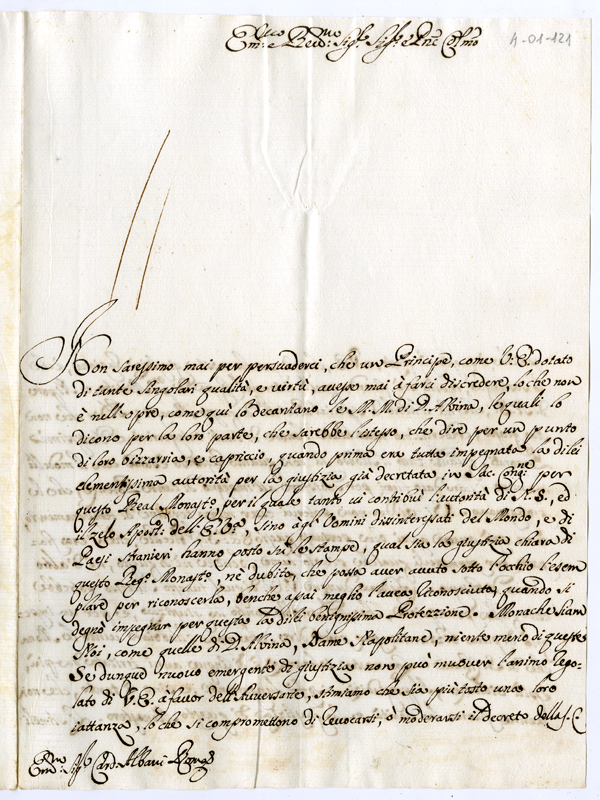 Em.mo e Rev.mo Sig.r Sig.r e P.ne Col.mo
4-01-121
Non Saressimo mai per persuaderci, che un Principe, come V. E. dotato
di tante Singolari qualità, e virtù, avesse mai à farci discredere, lo che non
è nell'opre, come quì lo decantano le M.M. di D. Alvina, le quali lo
dicono per la loro parte, che sarebbe l'istesso, che dire per un punto
di loro bizzarria, e capriccio, quando prima era tutta impegnata la di lei
clementissima autorità per la giustizia già decretata in Sac. Cong.ne per
questo Real Monast.o, per il quale tanto vi contribuì l'autorità di N. S., ed
il zelo Apost.o dell'E. V.a, sino agl'Uomini disinteressati del Mondo, e di
Paesi Stranieri hanno posto sù le stampe, qual sia la giustizia chiara di
questo Reg.o Monast.o, nè dubito, che possa aver avuto sotto l'occhio l'esem
plare per riconoscerla, benche assai meglio l'avea riconosciuta, quando si
degnò impegnar per questa la di lei benignissima Protezzione. Monache siam
Noi, come quelle di D. Alvina, Dame Napolitane, niente meno di queste
Se dunque nuovo emergente di giustizia non può muover l'animo rego-
lato di V. E. à favor dell'Avversarie, stimiamo che sia più tosto una loro
iattanza, lo che si compromettono di revocarsi, ò moderarsi il decreto della S. C.
Em.mo Sig.r Card. Albani